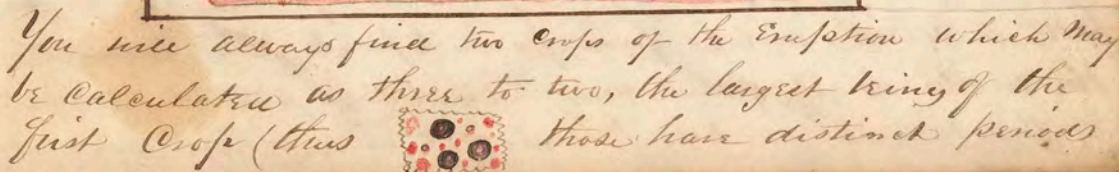 You will always find two Crops of the Eruption which May
be Calculated as three to two, the largest being of the
first Crop (thus those have distinct periods